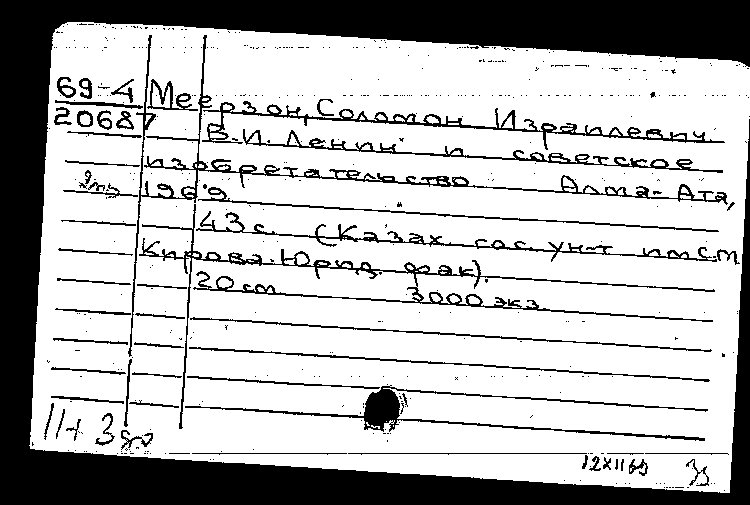 69-4 Меерзон, Соломон Израилевич.
20687 В.И. Ленин и советское
изобретательство Алма-Ата,
1969
43 с. (Казах. гос. ун-т им С.М.
Кирова. Юрид. фак).
20 см 3000 экз.
11+3
12XII69